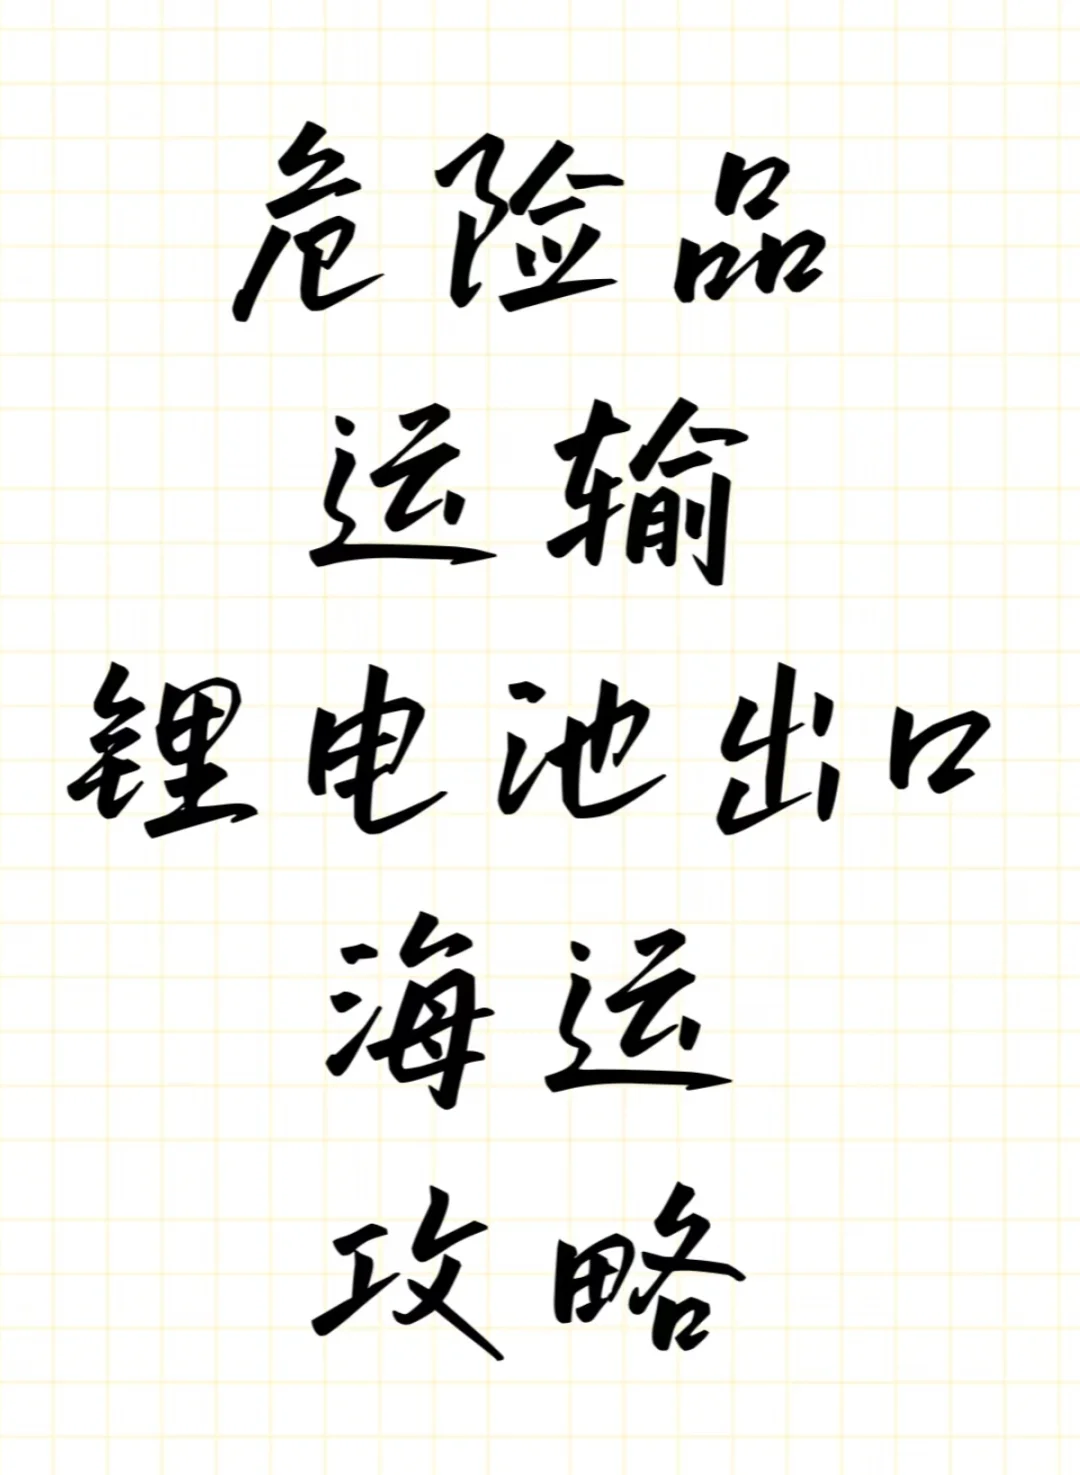 危险品
运输
锂电池出口
海运
攻略